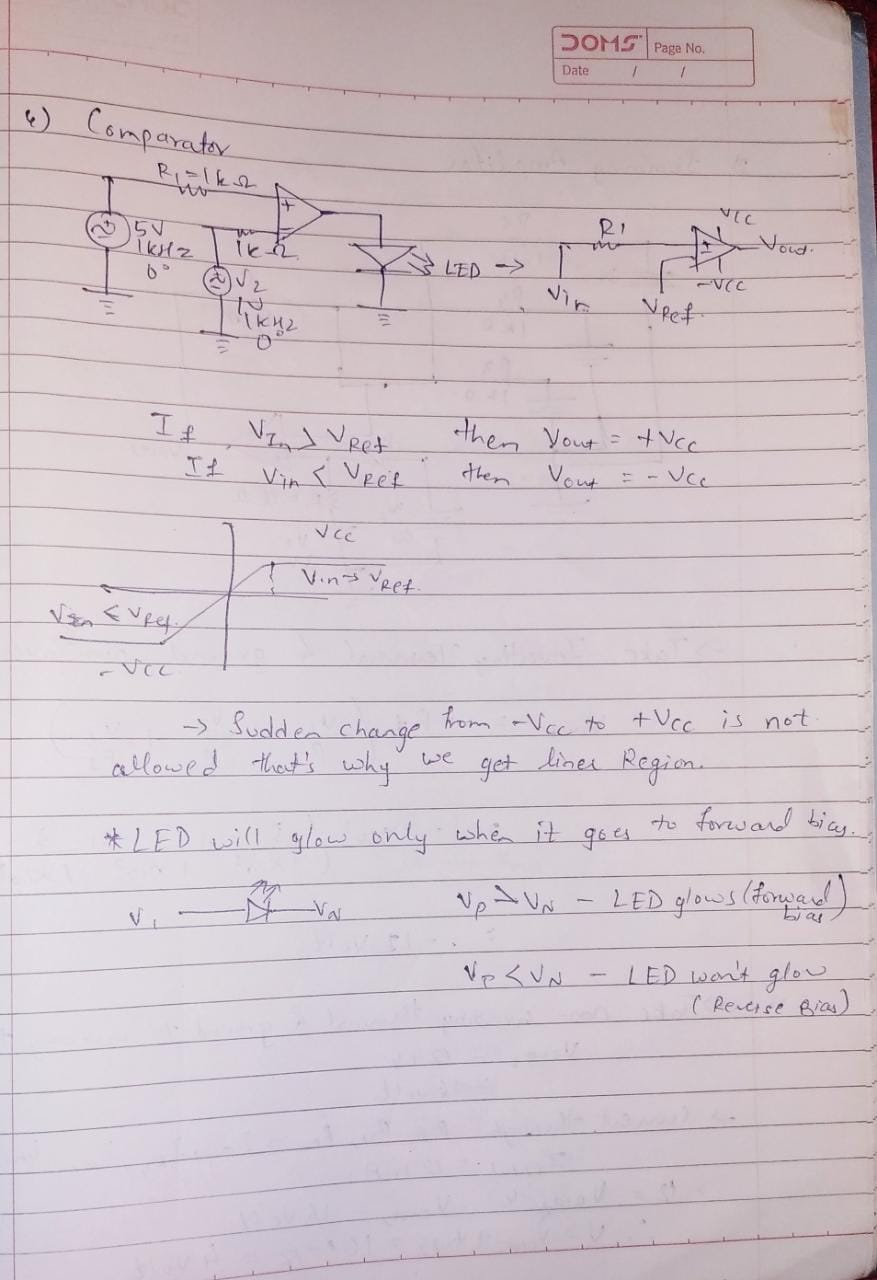 DOMS Page No.
Date / /
4) Comparator
R1=1kΩ
+
5V
1kHz
0°
1kΩ
V2
1V
1kHz
0°
LED →
R1
Vin
VRef.
+
VCC
-VCC
Vout.
If VIn > VRef then Vout = +VCC
If Vin < VRef then Vout = -VCC
VCC
Vin > VRef.
Vin < VRef.
-VCC
→ Sudden change from -VCC to +VCC is not
allowed that's why we get liner Region.
* LED will glow only when it goes to forward bias.
V1 VN
VP > VN - LED glows (forward
bias)
VP < VN - LED won't glow
(Reverse Bias)